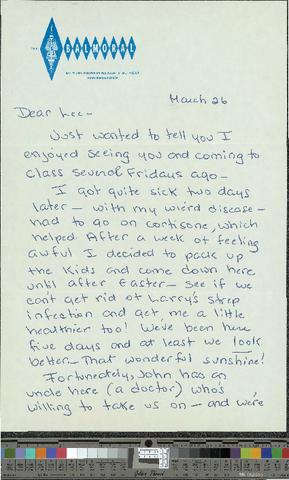 THE BALMORAL
March 26
Dear Lee-
Just wanted to tell you I
enjoyed seeing you and coming to
class several Fridays ago-
I got quite sick two days
later- with my wierd disease-
had to go on cortisone, which
helped. After a week of feeling
awful I decided to pack up
the kids and come down here
until after Easter- see if we
can't get rid of Larry's strep
infection and get me a little
healthier too! We've been here
five days and at least we look
better- That wonderful sunshine!
Fortunately, John has an
uncle here (a doctor) who's
willing to take us on- and we're